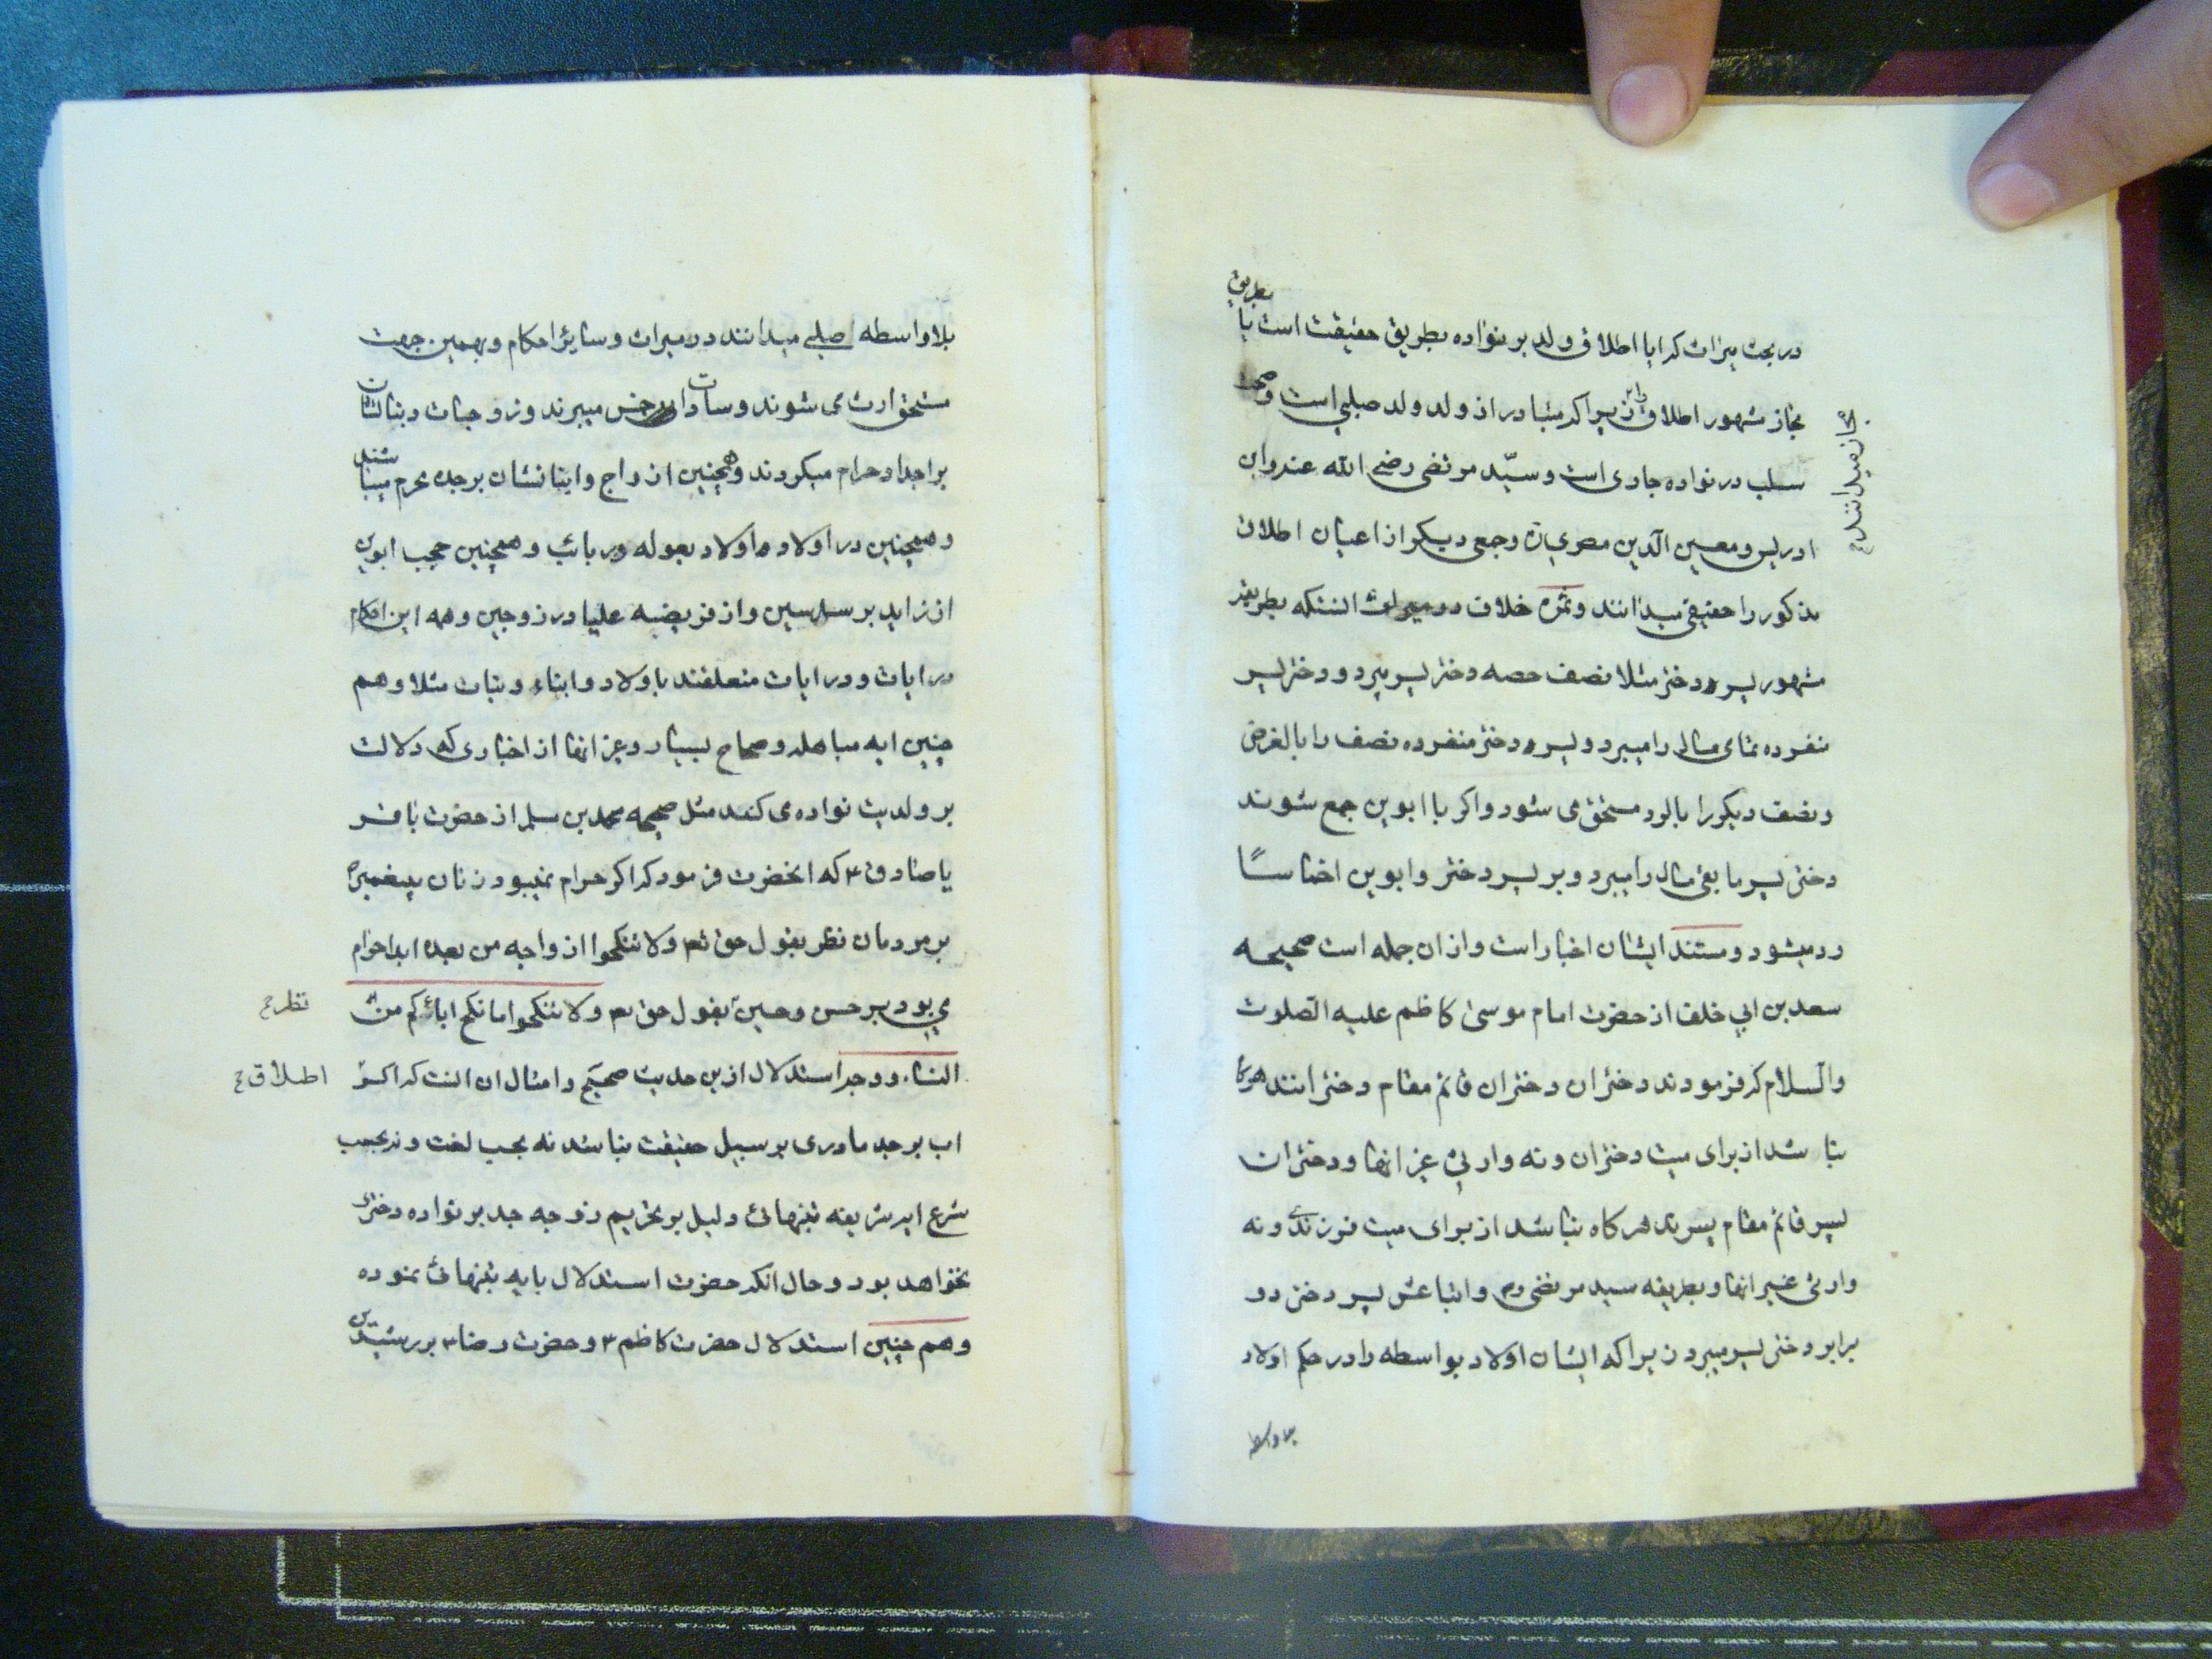 در بحث میراث که ایا اطلاق ولد بر نواده بطریق حقیقت است یا بطریق
مجاز مشهور اطلاق زیرا که متبادر از ولد ولد صلبی است و صحة
مجاز میدانند
سلب در نواده جاری است و سیّد مرتضی رضی الله عنه و ابن
ادریس و معین الدین مصری و جمعی دیگر از اعیان اطلاق
مذکور را حقیقی میدانند و ثمره خلاف در میراث انستکه بطریقه
مشهور پسر دختر مثلا نصف حصه دختر پسر میبرد و دختر پسر
منفرده تمامی مال را میبرد و پسر دختر منفرده نصف را بالفرض
و نصف دیگر را بالرد مستحق می شود و اگر با ابوین جمع شوند
دختر پسر ما بقی مال را میبرد و بر پسر دختر و ابوین اخماسًا
رد میشود و مستند ایشان اخبار است و از ان جمله است صحیحه
سعد بن ابی خلف از حضرت امام موسی کاظم علیه الصلوة
والسلام که فرمودند دختران دختران قائم مقام دخترانند هرگاه
نباشد از برای میت دختران و نه وارثی غیر انها و دختران
پسر قائم مقام پسرند هرگاه نباشد از برای میت فرزندی و نه
وارثی غیر انها و بطریقه سید مرتضی رم و اتباعش پسر دختر دو
برابر دختر پسر میبرد زیرا که ایشان اولاد بواسطه را در حکم اولاد
بلاواسطه
بلاواسطه اصلی میدانند در میراث و سایر احکام و بهمین جهت
مستحق ارث می شوند و سادات خمس میبرند و زوجات و بناتشان
بر اجداد حرام میگردند و همچنین ازواج و ابنا نشان بر جده محرم میباشند
و همچنین در اولاد اولاد بعوله و ربائب و همچنین حجب ابوین
از زاید بر سدسین و از فریضه علیا در زوجین و همه این احکام
در ایات و در ایات متعلقند باولاد و ابناء و بنات مثلا و هم
چنین ایه مباهله و صحاح بسیار و غیر انها از اخباری که دلالت
بر ولدیت نواده می کند مثل صحیحه محمد بن مسلم از حضرت باقر
یا صادق ع که انحضرت فرمود که اگر حرام نمیبود زنان پیغمبر ص
بر مردمان نظر بقول حق تعم ولا تنکحوا ازواجه من بعده ابدا حرام
می بود بر حسن و حسین ع بقول حق تعم ولا تنکحوا ما نکح ابائکم من
نظر ع
النساء و وجه استدلال ازین حدیث صحیح و امثال ان انست که اگر
اطلاق ع
اب بر جد مادری بر سبیل حقیقت نباشد نه بحسب لغت و نه بحسب
شرع ایه شریفه بتنهائی دلیل بر تحریم زوجه جد بر نواده دختری
نخواهد بود و حال انکه حضرت استدلال بایه بتنهائی نموده
و هم چنین استدلال حضرت کاظم ع و حضرت رضا ع بر رشیدین